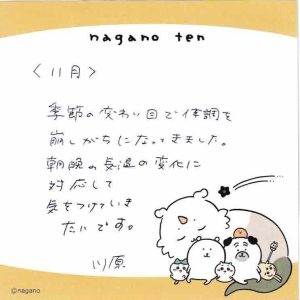 nagano ten
〈11月〉
季節の変わり目で体調を
崩しがちになってきました。
朝晩の気温の変化に
対応して
気をつけていき
たいです。
川原
©nagano